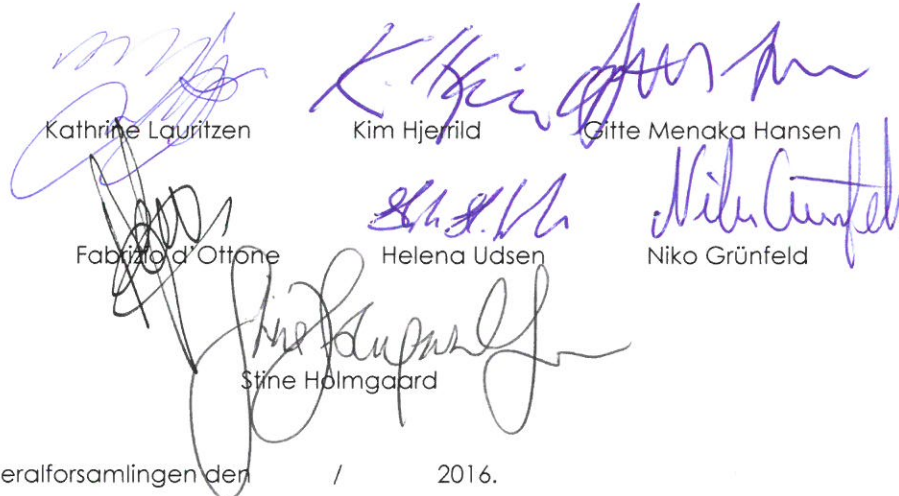 Kathrine Lauritzen Kim Hjerrild Gitte Menaka Hansen
Fabrizio d'Ottone Helena Udsen Niko Grünfeld
Stine Holmgaard
eralforsamlingen den / 2016.